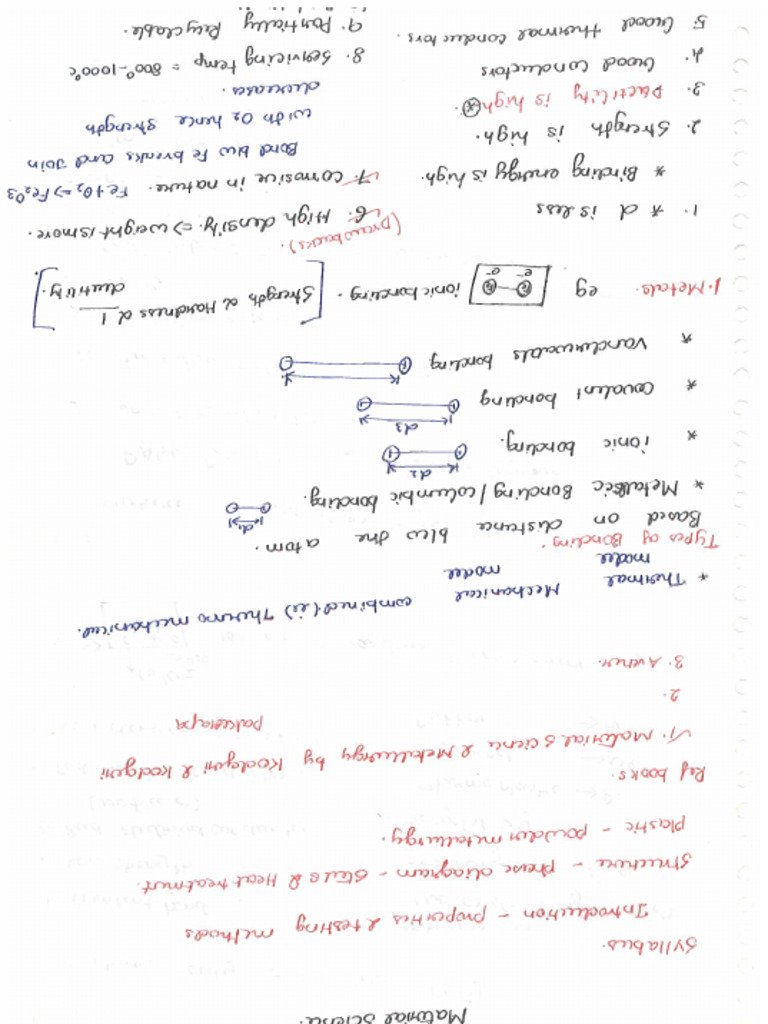 Material Science.
Syllabus.
Introduction - properties & testing methods
Structure - phase diagram - steels & Heat treatment.
Plastic - powder metallurgy.
Ref books.
1. Material Science & Metallurgy by Kodgiri & Kodgiri
2.
3. Avener.
* Thermal model Mechanical model combined (ie) Thermo mechanical.
Types of Bonding.
Based on distance b/w the atom.
* Metallic Bonding / columbic bonding. d1
* ionic bonding. d2
* Covalent bonding d3
* Vanderwals bonding
1. Metals. eg ionic bonding. [Strength α Hardness α 1/ductility.]
e- e-
1. * d is less
* Binding energy is high.
2. Strength is high.
3. Ductility is high
4. Good conductors
5. Good thermal conductors.
(Drawbacks)
6. High density => weight is more.
7. Corrosive in nature. Fe + O2 => Fe2O3
Bond b/w Fe breaks and Join
with O2 hence strength
decreases.
8. Servicing temp = 800°-1000°c
9. Partially Recyclable.